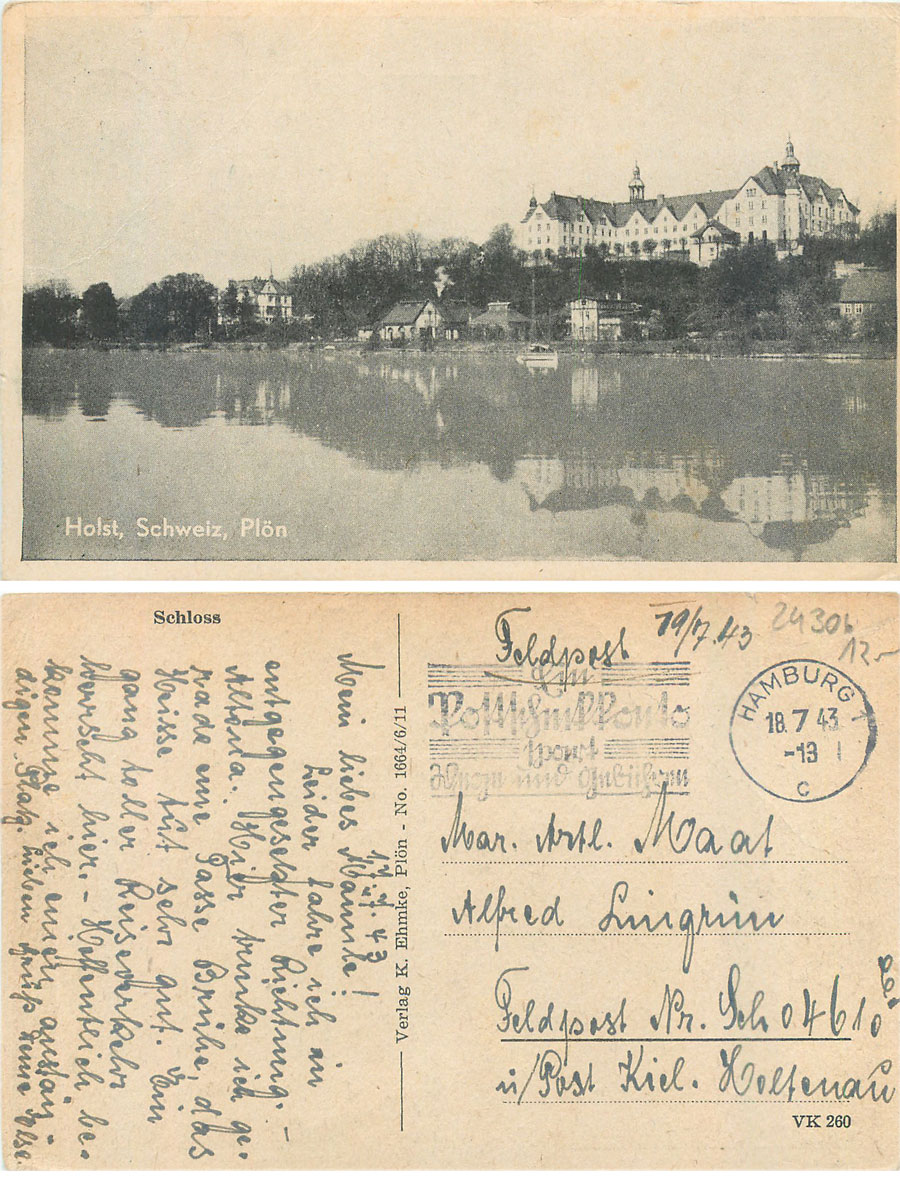 Holst, Schweiz, Plön
Schloss
17.7.43
Mein liebes Männle!
Leider fahre ich in
entgegengesetzter Richtung. -
Altona. Hier trinke ich ge-
rade eine Tasse Brühe, das
Heisse tut sehr gut. Ein
ganz toller Reiseverkehr
herrscht hier. - Hoffentlich be-
komme ich einen anstän-
digen Platz. Lieben Gruß Deine Ilse.
Verlag K. Ehmke, Plön - No. 1664/6/11
Feldpost
19/7.43
24306
12-
Ein
Postscheckkonto
spart
Wege und Gebühren
HAMBURG 1
18.7.43
-13
c
Mar. Artl. Maat
Alfred Lingrün
Feldpost Nr. Sch 04610 C.
ü/Post Kiel. Holtenau
VK 260